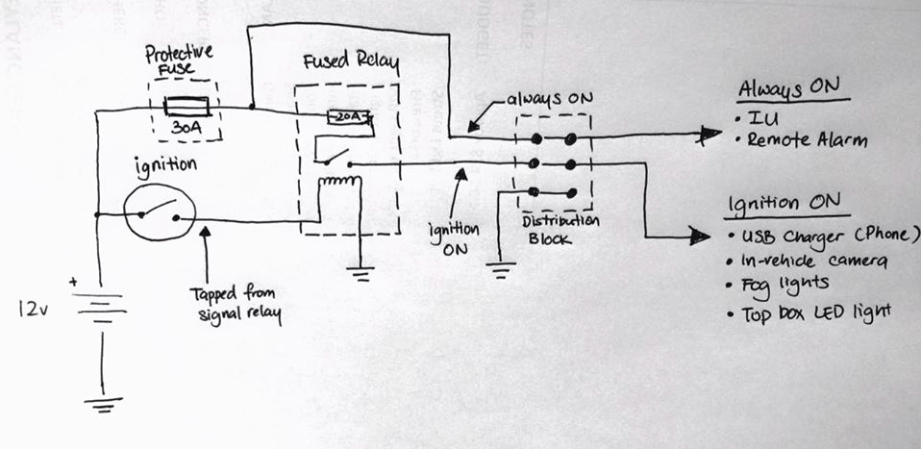 Protective
Fuse
30A
Fused Relay
20A
always ON
Always ON
• IU
• Remote Alarm
ignition
ignition
ON
Distribution
Block
Ignition ON
• USB Charger (Phone)
• In-vehicle camera
• Fog lights
• Top box LED light
Tapped from
signal relay
+
12v